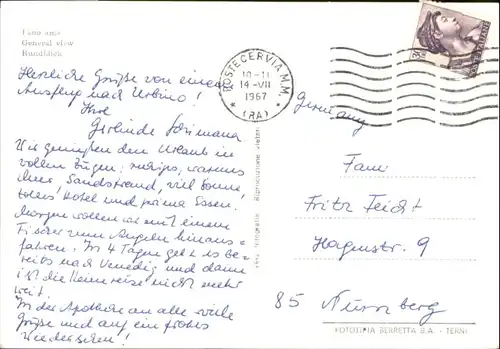 General view
Rundblick
Herzliche Grüße von einem
Ausflug nach Urbino!
Ihre
Gerlinde
Wir genießen den Urlaub in
vollen Zügen: ruhiges, warmes
Meer, Sandstrand, viel Sonne,
tolles Hotel und prima Essen.
Morgen wollen wir mit einem
Fischer zum Angeln hinaus=
fahren. In 4 Tagen geht es be-
reits nach Venedig und dann
ist die Heimreise nicht mehr
weit.
In der Apotheke an alle viele
Grüße und auf ein frohes
Wiedersehen!
POSTE CERVIA M.M.
10-11
14-VII
1967
(RA)
Germany
Fam.
Fritz Feicht
Hagenstr. 9
85 Nürnberg
FOTOTIPIA BERRETTA S.A. - TERNI